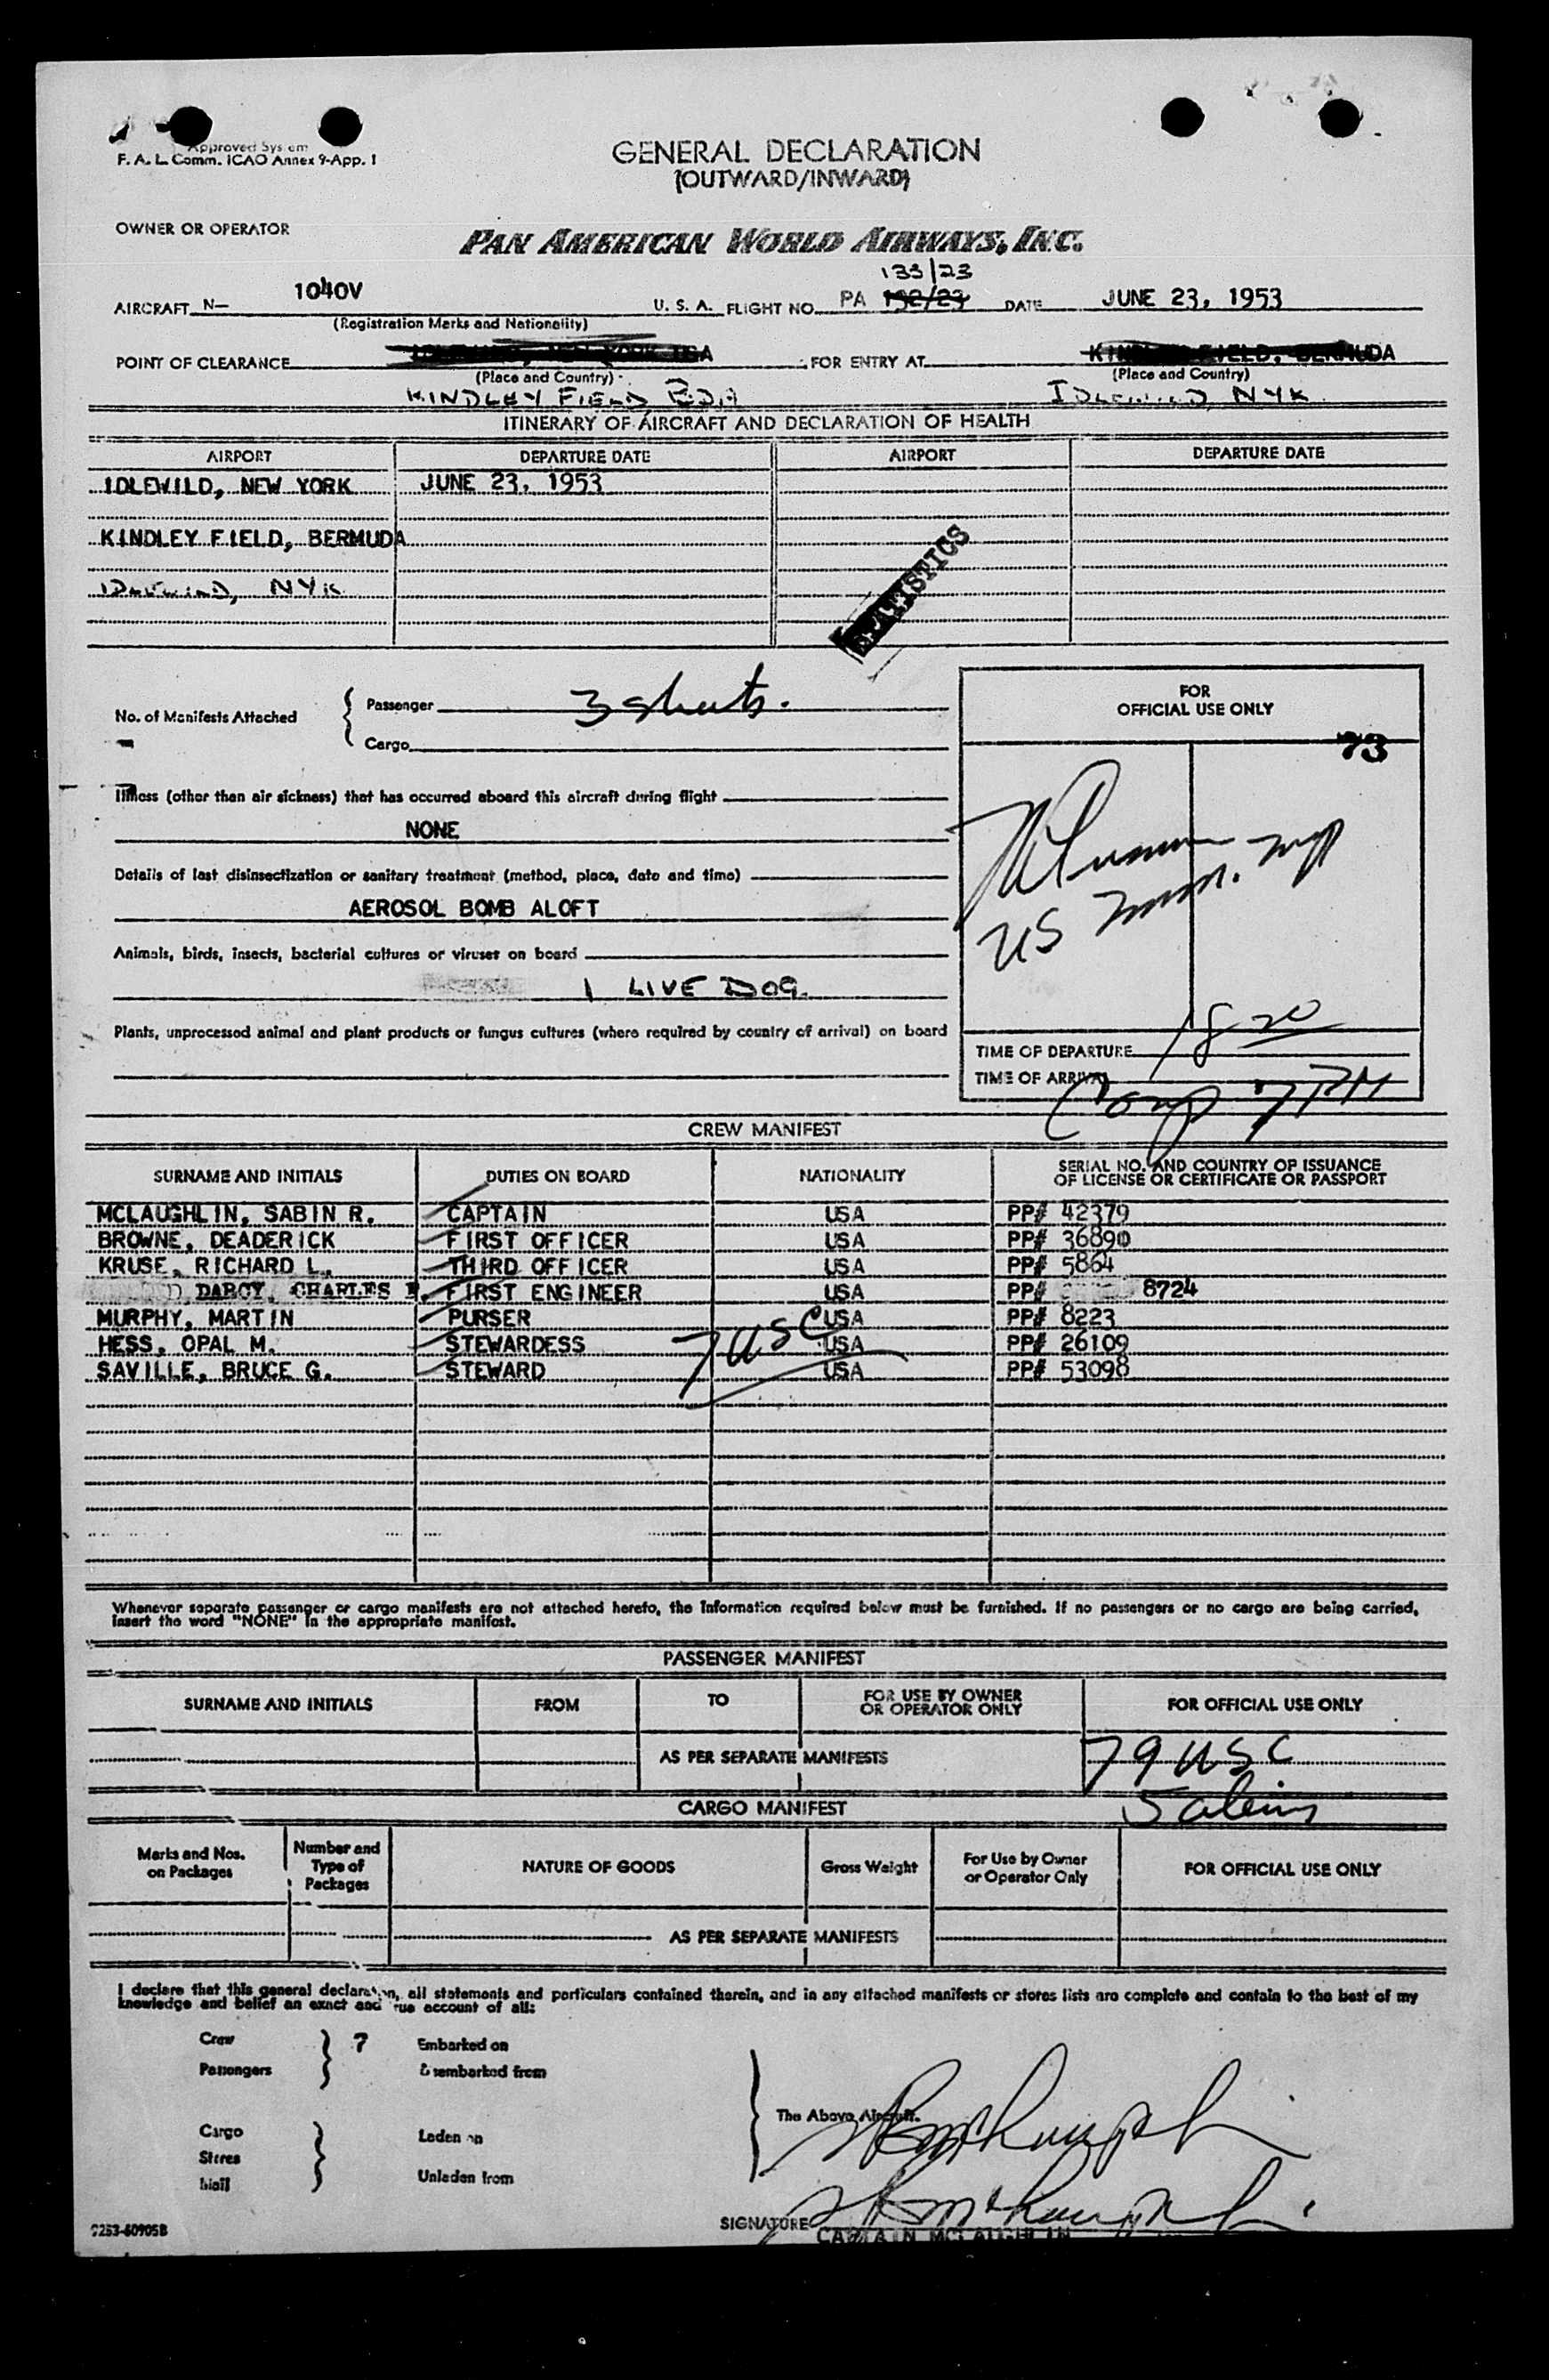 Approved System
F. A. L. Comm. ICAO Annex 9-App. 1
GENERAL DECLARATION
(OUTWARD/INWARD)
OWNER OR OPERATOR
PAN AMERICAN WORLD AIRWAYS, INC.
133/23
AIRCRAFT N- 1040V U. S. A. FLIGHT NO. PA 132/23 DATE JUNE 23, 1953
(Registration Marks and Nationality)
POINT OF CLEARANCE NEW YORK USA FOR ENTRY AT KINDLEY FIELD, BERMUDA
(Place and Country) (Place and Country)
KINDLEY FIELD BDA IDLEWILD, NYK
ITINERARY OF AIRCRAFT AND DECLARATION OF HEALTH
AIRPORT DEPARTURE DATE AIRPORT DEPARTURE DATE
IDLEWILD, NEW YORK JUNE 23, 1953
KINDLEY FIELD, BERMUDA
IDLEWILD, NYK
STATISTICS
No. of Manifests Attached
Passenger 3 sheets.
Cargo
FOR
OFFICIAL USE ONLY
73
Illness (other than air sickness) that has occurred aboard this aircraft during flight
NONE
Details of last disinsectization or sanitary treatment (method, place, date and time)
AEROSOL BOMB ALOFT
US Imm.
Animals, birds, insects, bacterial cultures or viruses on board
1 LIVE DOG.
Plants, unprocessed animal and plant products or fungus cultures (where required by country of arrival) on board
TIME OF DEPARTURE 1820
TIME OF ARRIVAL
Comp 7 PM
CREW MANIFEST
SURNAME AND INITIALS DUTIES ON BOARD NATIONALITY SERIAL NO. AND COUNTRY OF ISSUANCE
OF LICENSE OR CERTIFICATE OR PASSPORT
MCLAUGHLIN, SABIN R. CAPTAIN USA PP# 42379
BROWNE, DEADERICK FIRST OFFICER USA PP# 36890
KRUSE, RICHARD L. THIRD OFFICER USA PP# 5864
DARCY, CHARLES F. FIRST ENGINEER USA PP# 8724
MURPHY, MARTIN PURSER USA PP# 8223
HESS, OPAL M. STEWARDESS USA PP# 26109
SAVILLE, BRUCE G. STEWARD USA PP# 53098
7 USC
Whenever separate passenger or cargo manifests are not attached hereto, the information required below must be furnished. If no passengers or no cargo are being carried,
insert the word "NONE" in the appropriate manifest.
PASSENGER MANIFEST
SURNAME AND INITIALS FROM TO FOR USE BY OWNER
OR OPERATOR ONLY FOR OFFICIAL USE ONLY
AS PER SEPARATE MANIFESTS 79 USC
5 aliens
CARGO MANIFEST
Marks and Nos.
on Packages
Number and
Type of
Packages
NATURE OF GOODS
Gross Weight
For Use by Owner
or Operator Only
FOR OFFICIAL USE ONLY
AS PER SEPARATE MANIFESTS
I declare that this general declaration, all statements and particulars contained therein, and in any attached manifests or stores lists are complete and contain to the best of my
knowledge and belief an exact and true account of all:
Crew 7 Embarked on
Passengers Disembarked from
The Above Aircraft.
Cargo Laden on
Stores
Mail Unladen from
SIGNATURE
CAPTAIN MCLAUGHLIN